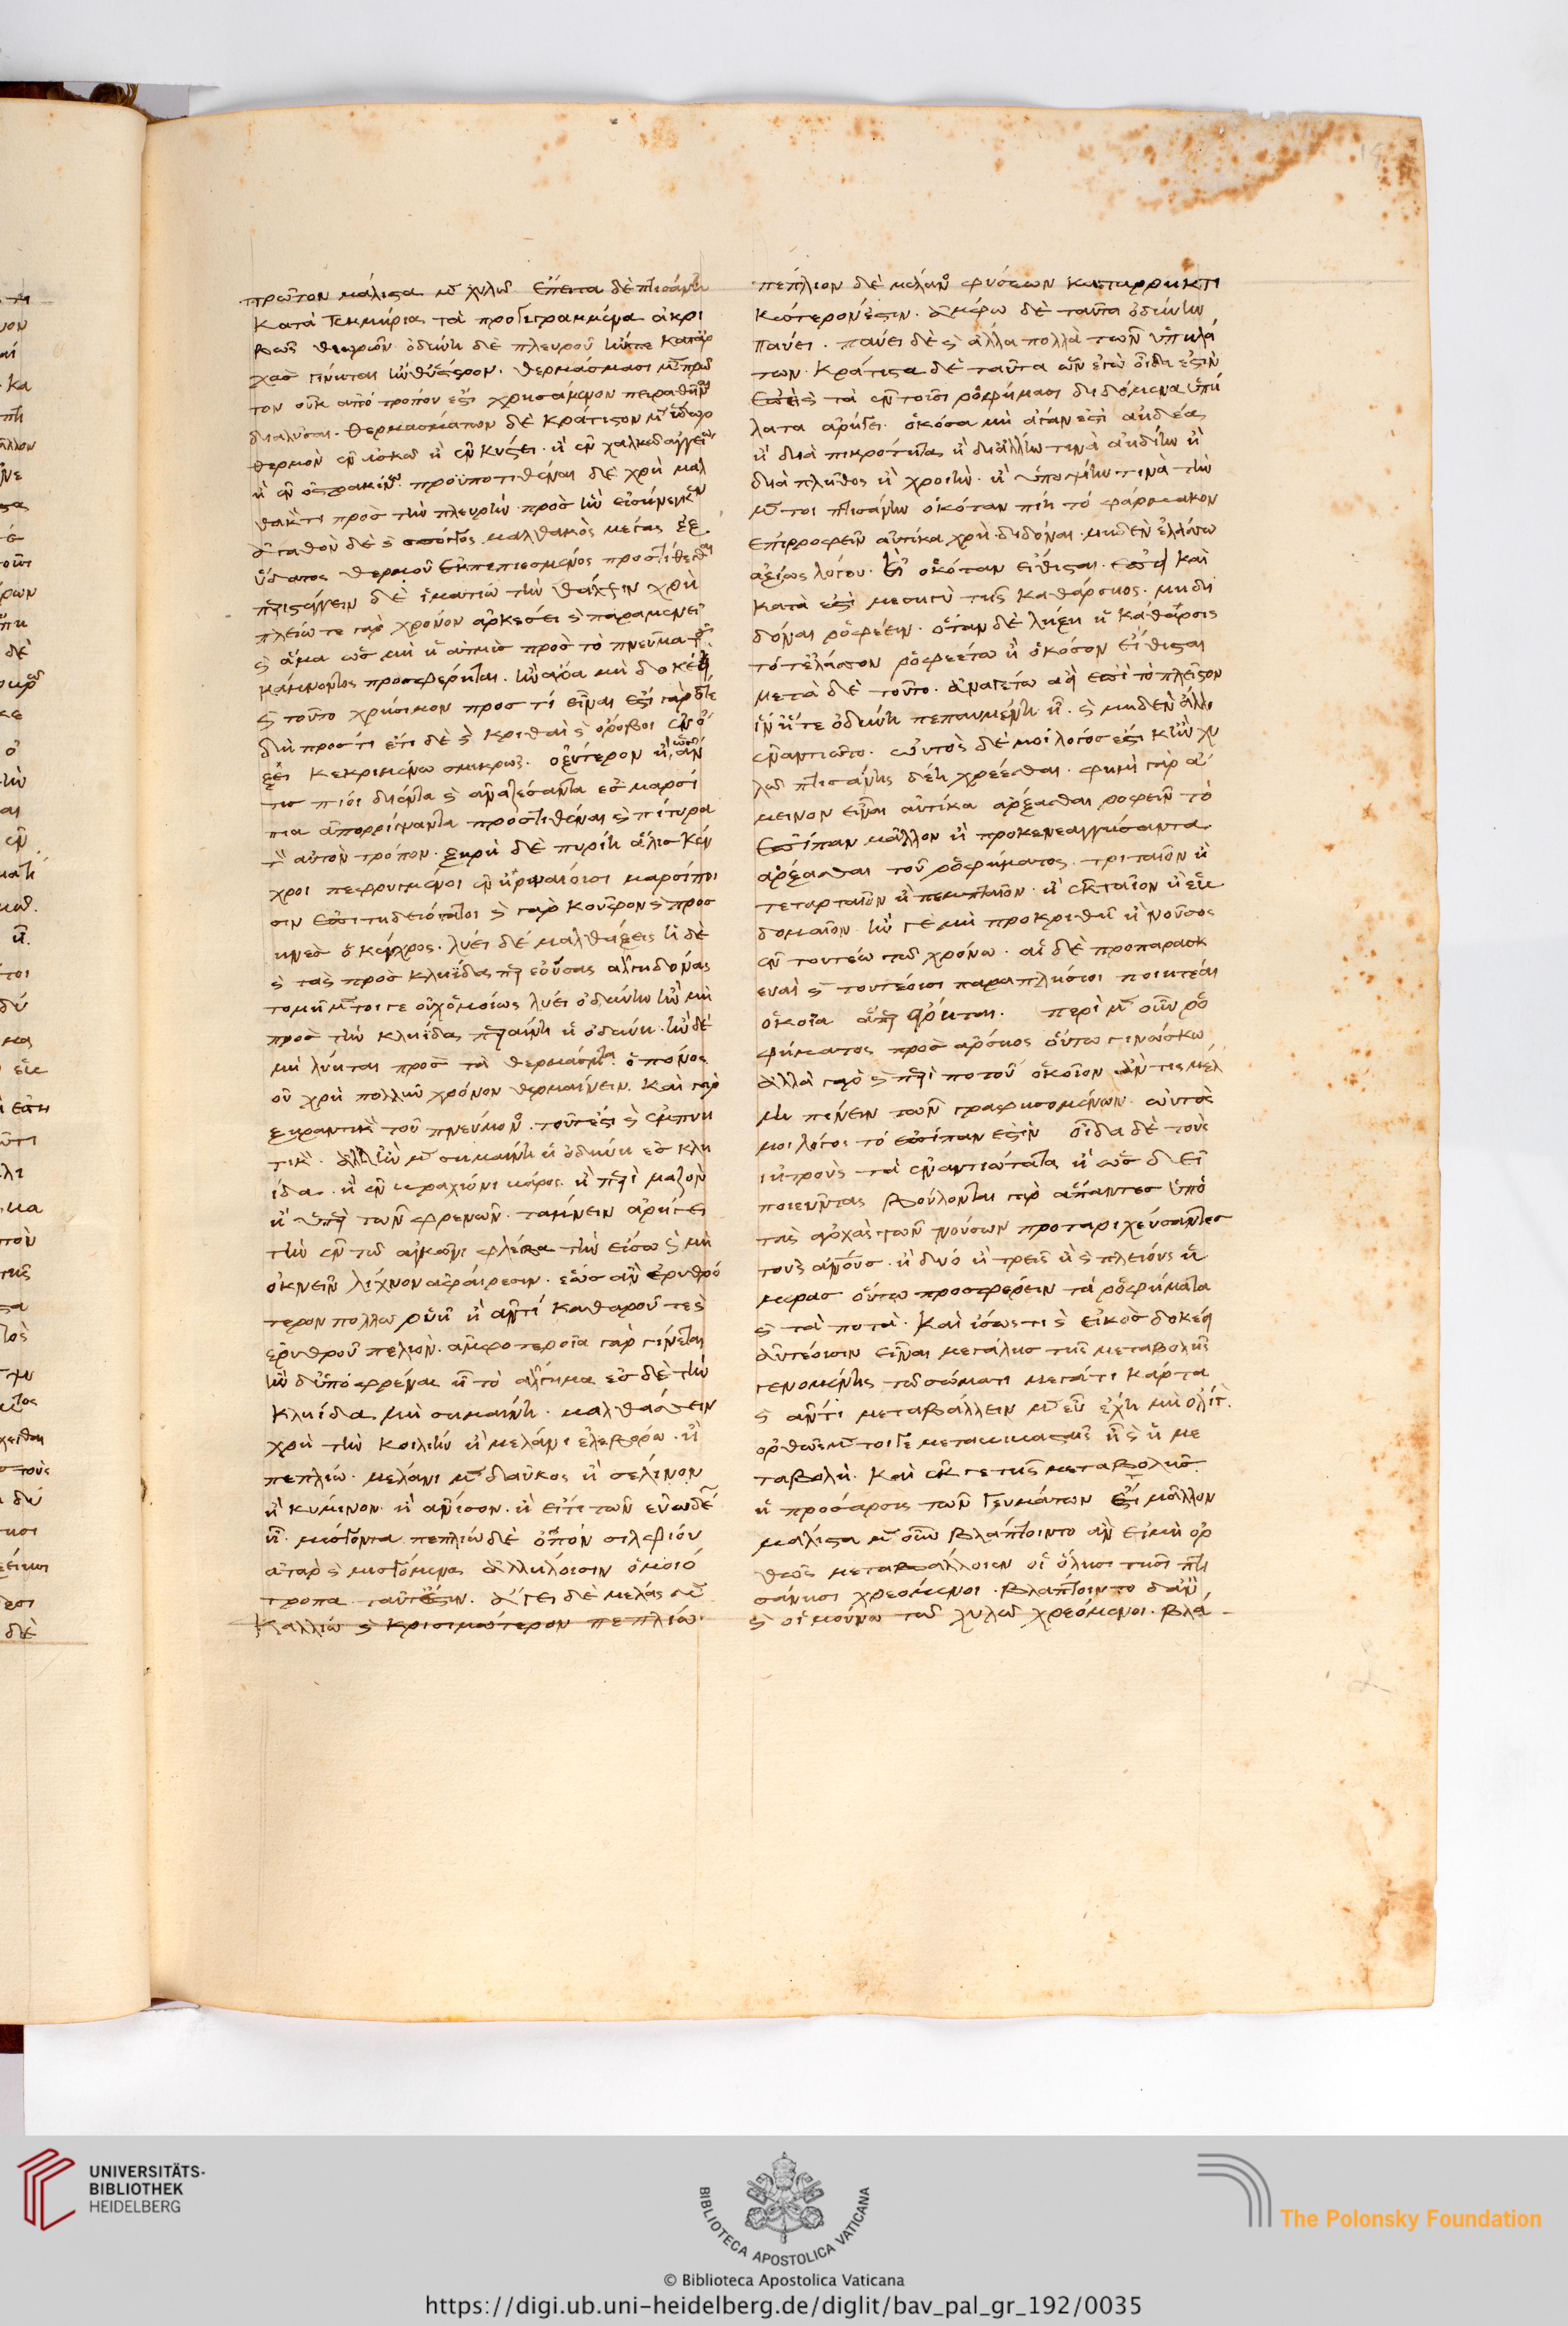 πρῶτον μάλιστα μὲν χυλῶ ἔπειτα δὲ πτισάνη
κατὰ τεκμήρια τὰ προγεγραμμένα ἀκρι
βῶς θεωρῶν· ὀδύνη δὲ πλευροῦ ἤν τε κατ' ἀρ
χὰς γίνηται ἢν θ' ὕστερον· θερμάσμασι μὲν πρῶ
τον οὐκ ἀπὸ τρόπου ἐστὶ χρησάμενον πειραθῆναι
διαλῦσαι· θερμασμάτων δὲ κράτιστον μὲν ὕδωρ
θερμὸν ἐν ἀσκῶ ἢ ἐν κύστει· ἢ ἐν χαλκῶ ἀγγείω
ἢ ἐν ὀστρακίνω· προϋποτιθέναι δὲ χρὴ μαλ
θακόν τι πρὸς τὴν πλευρὴν πρὸς τὴν εἰσήνειαν
ἀγαθὸν δὲ ϗ σπόγγος μαλθακὸς μέγας ἐξ
ὕδατος θερμοῦ ἐκπεπιεσμένος προστίθεσθαι
περιστέγειν δὲ ἱματίω τὴν θάλψιν χρὴ
πλείω τε γὰρ χρόνον ἀρκέσει ϗ παραμενεῖ
ϗ ἅμα ὡς μὴ ἡ ἀτμὶς πρὸς τὸ πνεῦμα τοῦ
κάμνοντος προσφέρηται· ἢν ἄρα μὴ δοκέη
ϗ τοῦτο χρήσιμον πρός τι εἶναι ἔστι γὰρ ὅτε
δεῖ πρός τι ἔτι δὲ ϗ κριθαὶ ϗ ὄροβοι ἐν ὄ
ξει κεκρημένω σμικρῶ· ὀξύτερον ἢ ὡς ἄν
τις πίοι διέντα ϗ ἀναζέσαντα ἐς μαρσί
πια ἀπορρίψαντα προστιθέναι ϗ πίτυρα
τὸν αὐτὸν τρόπον· ξηρὴ δὲ πυρίη ἅλες κέγ
χροι πεφρυγμένοι ἐν εἰρινέοισι μαρσίποι
σιν ἐπιτηδειότατοι ϗ γὰρ κοῦφρον ϗ προσ
ηνὲς ὁ κέγχρος· λύει δὲ μάλθαξις ἡ δὲ
ϗ τὰς πρὸς κληῖδας περεούσας ἀλγηδόνας
τομὴ μέντοι γε οὐχ ὁμοίως λύει ὀδύνην ἢν μὴ
πρὸς τὴν κληίδα περαίνη ἡ ὀδύνη· ἢν δὲ
μὴ λύηται πρὸς τὰ θερμάσματα ὁ πόνος
οὐ χρὴ πολλὸν χρόνον θερμαίνειν. καὶ γὰρ
ξηραντικὸν τοῦ πνεύμονος τοῦτ' ἐστὶ ϗ ἐμπυη
τικόν· ἀλλ' ἢν μὲν σημαίνη ἡ ὀδύνη ἐς κλη
ίδα· ἢ ἐν βραχίονι βάρος· ἢ περὶ μαζὸν
ἢ ὑπὲρ τῶν φρενῶν· τάμνειν ἀρήγει
τὴν ἐν τῶ ἀγκῶνι φλέβα τὴν εἴσω ϗ μὴ
ὀκνεῖν λίχνον ἀφαίρεσιν· ἕως ἂν ἐρυθρό
τερον πολλῶ ῥυῆ ἢ ἀντὶ καθαροῦ τε ϗ
ἐρυθροῦ πελιόν· ἀμφότερα γὰρ γίνεται
ἢν δ' ὑπὸ φρένας ἦ τὸ ἄλγημα ἐς δὲ τὴν
κληίδα μὴ σημαίνη· μαλθάσσειν
χρὴ τὴν κοιλίην ἢ μελάνι ἐλεβόρω· ἢ
πεπλίω· μελάνι μὲν δαῦκος ἢ σέλινον
ἢ κύμινον ἢ ἄνισον· ἢ εἴ τι τῶν εὐωδέων
ἦ· μίσγοντα πεπλίω δὲ ὀπὸν σιλφίου
ἀτὰρ ϗ μισγόμενα ἀλλήλοισιν ὁμοιό
τροπα ταῦτ' ἔστιν· ἄγει δὲ μέλας μὲν
καλλίω ϗ κρισιμώτερον πεπλίω·
πέπλιον δὲ μέλανος φυσέων καταρρηκτι
κώτερον ἐστιν· ἄμφω δὲ ταῦτα ὀδύνην
παύει· παύει δὲ ϗ ἄλλα πολλὰ τῶν ὑπηλά
των· κράτιστα δὲ ταῦτα ὧν ἐγὼ οἶδα ἐστίν
ἐπεὶ ϗ τὰ ἐν τοῖσι ῥοφήμασι διδόμενα ὑπή
λατα ἀρήγει ὁκόσα μὴ ἄγαν ἐστὶ ἀηδέα
ἢ διὰ πικρότητα ἢ δι' ἄλλην τινὰ ἀηδίην ἢ
διὰ πλῆθος ἢ χροιὴν· ἢ ὑποψίην τινὰ τὴν
μέντοι πτισάνην ὁκόταν πίη τὸ φάρμακον
ἐπιρροφεῖν αὐτίκα χρὴ διδόναι μηδὲν ἐλάσσω
ἀξίως λόγου· ἢ ὁκόταν εἴθισται· ἐπεὶ καὶ
κατὰ ἐστὶ μεσηγὺ τῆς καθάρσιος· μὴ δι
δόναι ῥοφέειν· ὅταν δὲ λήξη ἡ κάθαρσις
τότ' ἔλασσον ῥοφεέτω ἢ ὁκόσον εἴθισται
μετὰ δὲ τοῦτο· ἀναγέτω αἰεὶ ἐπὶ τὸ πλεῖστον
ἢν ἥτε ὀδύνη πεπαυμένη ἦ· ϗ μηδὲν ἄλλο
ἐναντιῶτο· ωὐτὸς δέ μοι λόγος ἐστὶ κἢν χυ
λῶ πτισάνης δέη χρέεσθαι· φημὶ γὰρ ἄ
μεινον εἶναι αὐτίκα ἄρξασθαι ῥοφεῖν τὸ
ἐπίπαν μᾶλλον ἢ προκενεαγγήσαντα
ἄρξασθαι τοῦ ῥοφήματος· τριταῖον ἢ
τεταρταῖον ἢ πεμπταῖον· ἢ ἑκταῖον ἢ ἑβ
δομαῖον ἤν γε μὴ προκριθῆ ἡ νοῦσος
ἐν τουτέω τῶ χρόνω· αἱ δὲ προπαρασκ
ευαὶ ϗ τουτέοισι παραπλήσιοι ποιητέαι
ὁκοῖα ἅπερ εἴρηται. περὶ μὲν οὖν ῥο
φήματος προσάρσιος οὕτω γινώσκω
ἀλλὰ γὰρ ϗ περὶ ποτοῦ ὁκοῖον ἄν τις μέλ
λη πίνειν τῶν γραφησομένων ωὑτὸς
μοι λόγος τὸ ἐπίπαν ἐστίν οἶδα δὲ τοὺς
ἰητροὺς τὰ ἐναντιώτατα ἢ ὡς δεῖ
ποιεῦντας βούλονται γὰρ ἅπαντες ὑπὸ
τὰς ἀρχὰς τῶν νούσων προταριχεύσαντες
τοὺς ἀνοὺς ἢ δύο ἢ τρεῖς ἢ ϗ πλείους ἡ
μέρας οὕτω προσφέρειν τὰ ῥοφήματα
ϗ τὰ ποτὰ· καὶ ἴσως τι ϗ εἰκὸς δοκέει
αὐτέοισιν εἶναι μεγάλης τῆς μεταβολῆς
γενομένης τῶ σώματι μέγα τι κάρτα
ϗ ἀντὶ μεταβάλλειν μὲν εὖ ἔχει μὴ ὀλίγον
ὀρθῶς μέντοι γε ... ἦ ϗ ἡ με
ταβολή· καὶ ἔκ γε τῆς μεταβολῆς
ἡ πρόσαρσις τῶν γευμάτων ἔτι μᾶλλον
μάλιστα μὲν οὖν βλάπτοιντο ἂν εἰ μὴ ὀρ
θῶς μεταβάλλοιεν οἱ ὅλησι τῆσι πτι
σάνησι χρεόμενοι· βλάπτοιντο δ' ἂν
ϗ οἱ μούνω τῶ χυλῶ χρεόμενοι· βλά
UNIVERSITÄTS-
BIBLIOTHEK
HEIDELBERG
BIBLIOTECA APOSTOLICA VATICANA
The Polonsky Foundation
© Biblioteca Apostolica Vaticana
https://digi.ub.uni-heidelberg.de/diglit/bav_pal_gr_192/0035